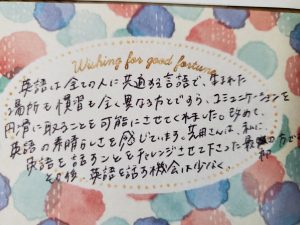 Wishing for good fortune
英語は全ての人に共通な言語で、生まれた
場所も慣習も全く異なる方とですら、コミュニケーションを
円滑に取ることを可能にさせてくれました。改めて、
英語の素晴らしさを感じています。 さんは、私に
英語を話すことをチャレンジさせて下さった最 の方で
その後、英語を話す機会は少なく